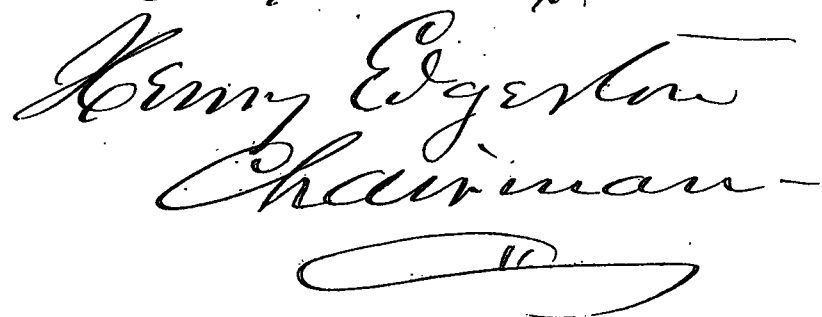 Henry Edgerton
Chairman-